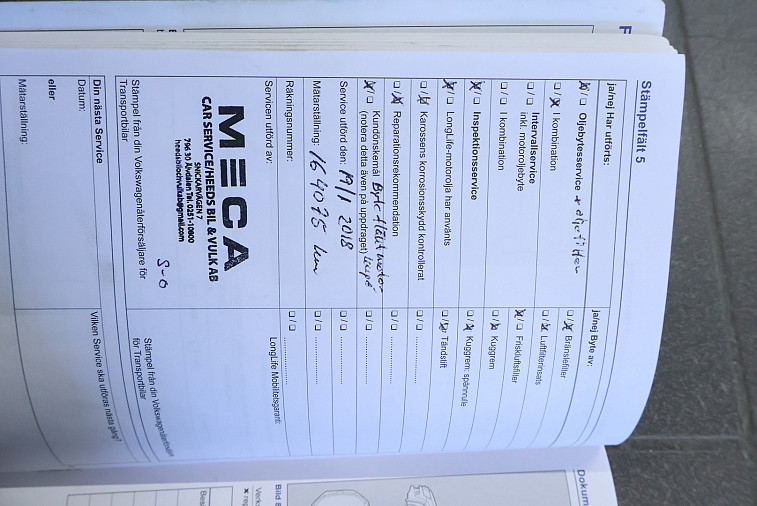 Stämpelfält 5
ja/nej Har utförts:
☒/☐ Oljebytesservice + oljefilter
☐/☒ I kombination
☐/☐ Intervallservice
inkl. motoroljebyte
☐/☐ I kombination
☒/☐ Inspektionsservice
☒/☐ LongLife-motorolja har använts
☐/☒ Karossens korrosionsskydd kontrollerat
☐/☒ Reparationsrekommendation
☒/☐ Kundönskemål Byte fläktmotor
(notera detta även på uppdraget) kupé
Service utförd den: 19/1 2018
Mätarställning: 164075 km
Räkningsnummer:
Servicen utförd av:
MECA
CAR SERVICE/HEEDS BIL & VULK AB
SNICKARVÄGEN 7
796 30 Älvdalen Tel. 0251-10800
heedsbilochvulkab@gmail.com
S-O
Stämpel från din Volkswagenåterförsäljare för
Transportbilar
ja/nej Byte av:
☐/☒ Bränslefilter
☐/☒ Luftfilterinsats
☒/☐ Friskluftsfilter
☐/☒ Kuggrem
☐/☒ Kuggrem: spännrulle
☐/☒ Tändstift
☐/☐ ..............
☐/☐ ..............
☐/☐ ..............
☐/☐ ..............
☐/☐ ..............
☐/☐ ..............
LongLife Mobilitetsgaranti:
Stämpel från din Volkswagenåterförsäljare
för Transportbilar
Din nästa Service
Datum:
eller
Mätarställning:
Vilken Service ska utföras nästa gång?
Dokum
Bild 8
Verks
✖ rep
Bes